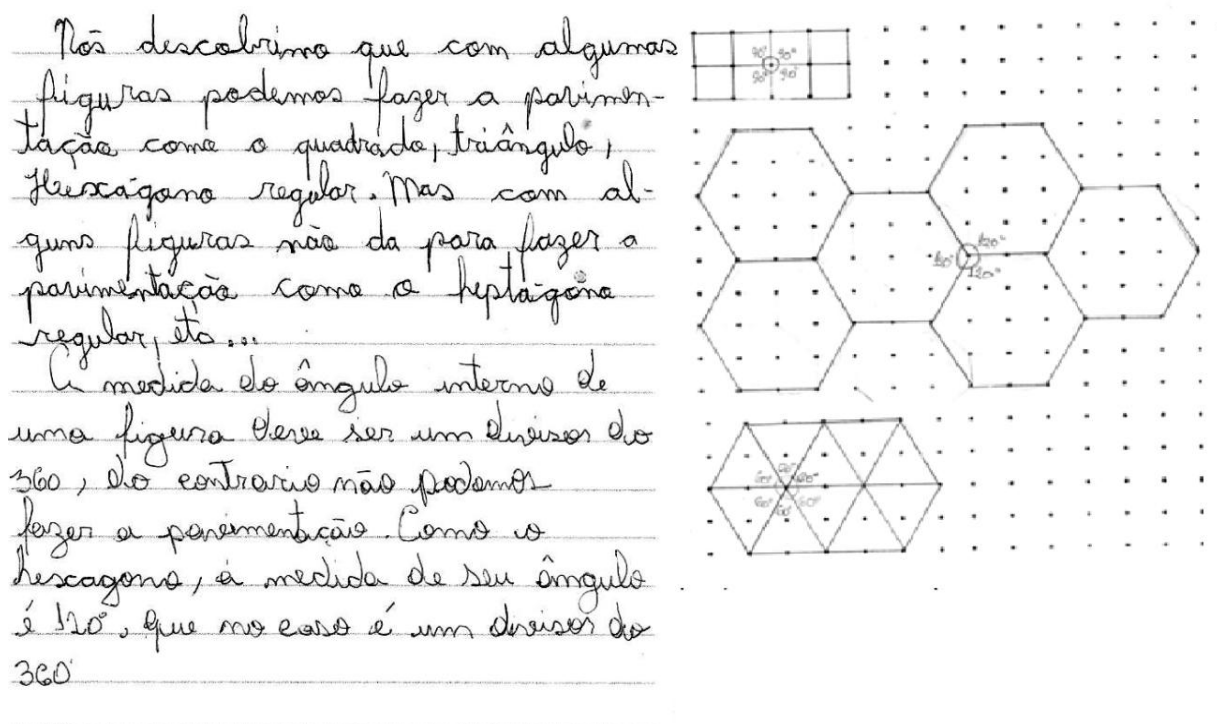 Nós descobrimo que com algumas
figuras podemos fazer a pavimen-
tação como o quadrado, triângulo,
Hexágono regular. Mas com al-
guns figuras não da para fazer a
pavimentação como o heptágono
regular, etc...
A medida do ângulo interno de
uma figura deve ser um divisor do
360, do contrario não podemos
fazer a pavimentação. Como o
hexagono, á medida de seu ângulo
é 120°, que no caso é um divisor do
360
90° 90°
90° 90°
120°
120°
120°
60° 60° 60°
60° 60° 60°